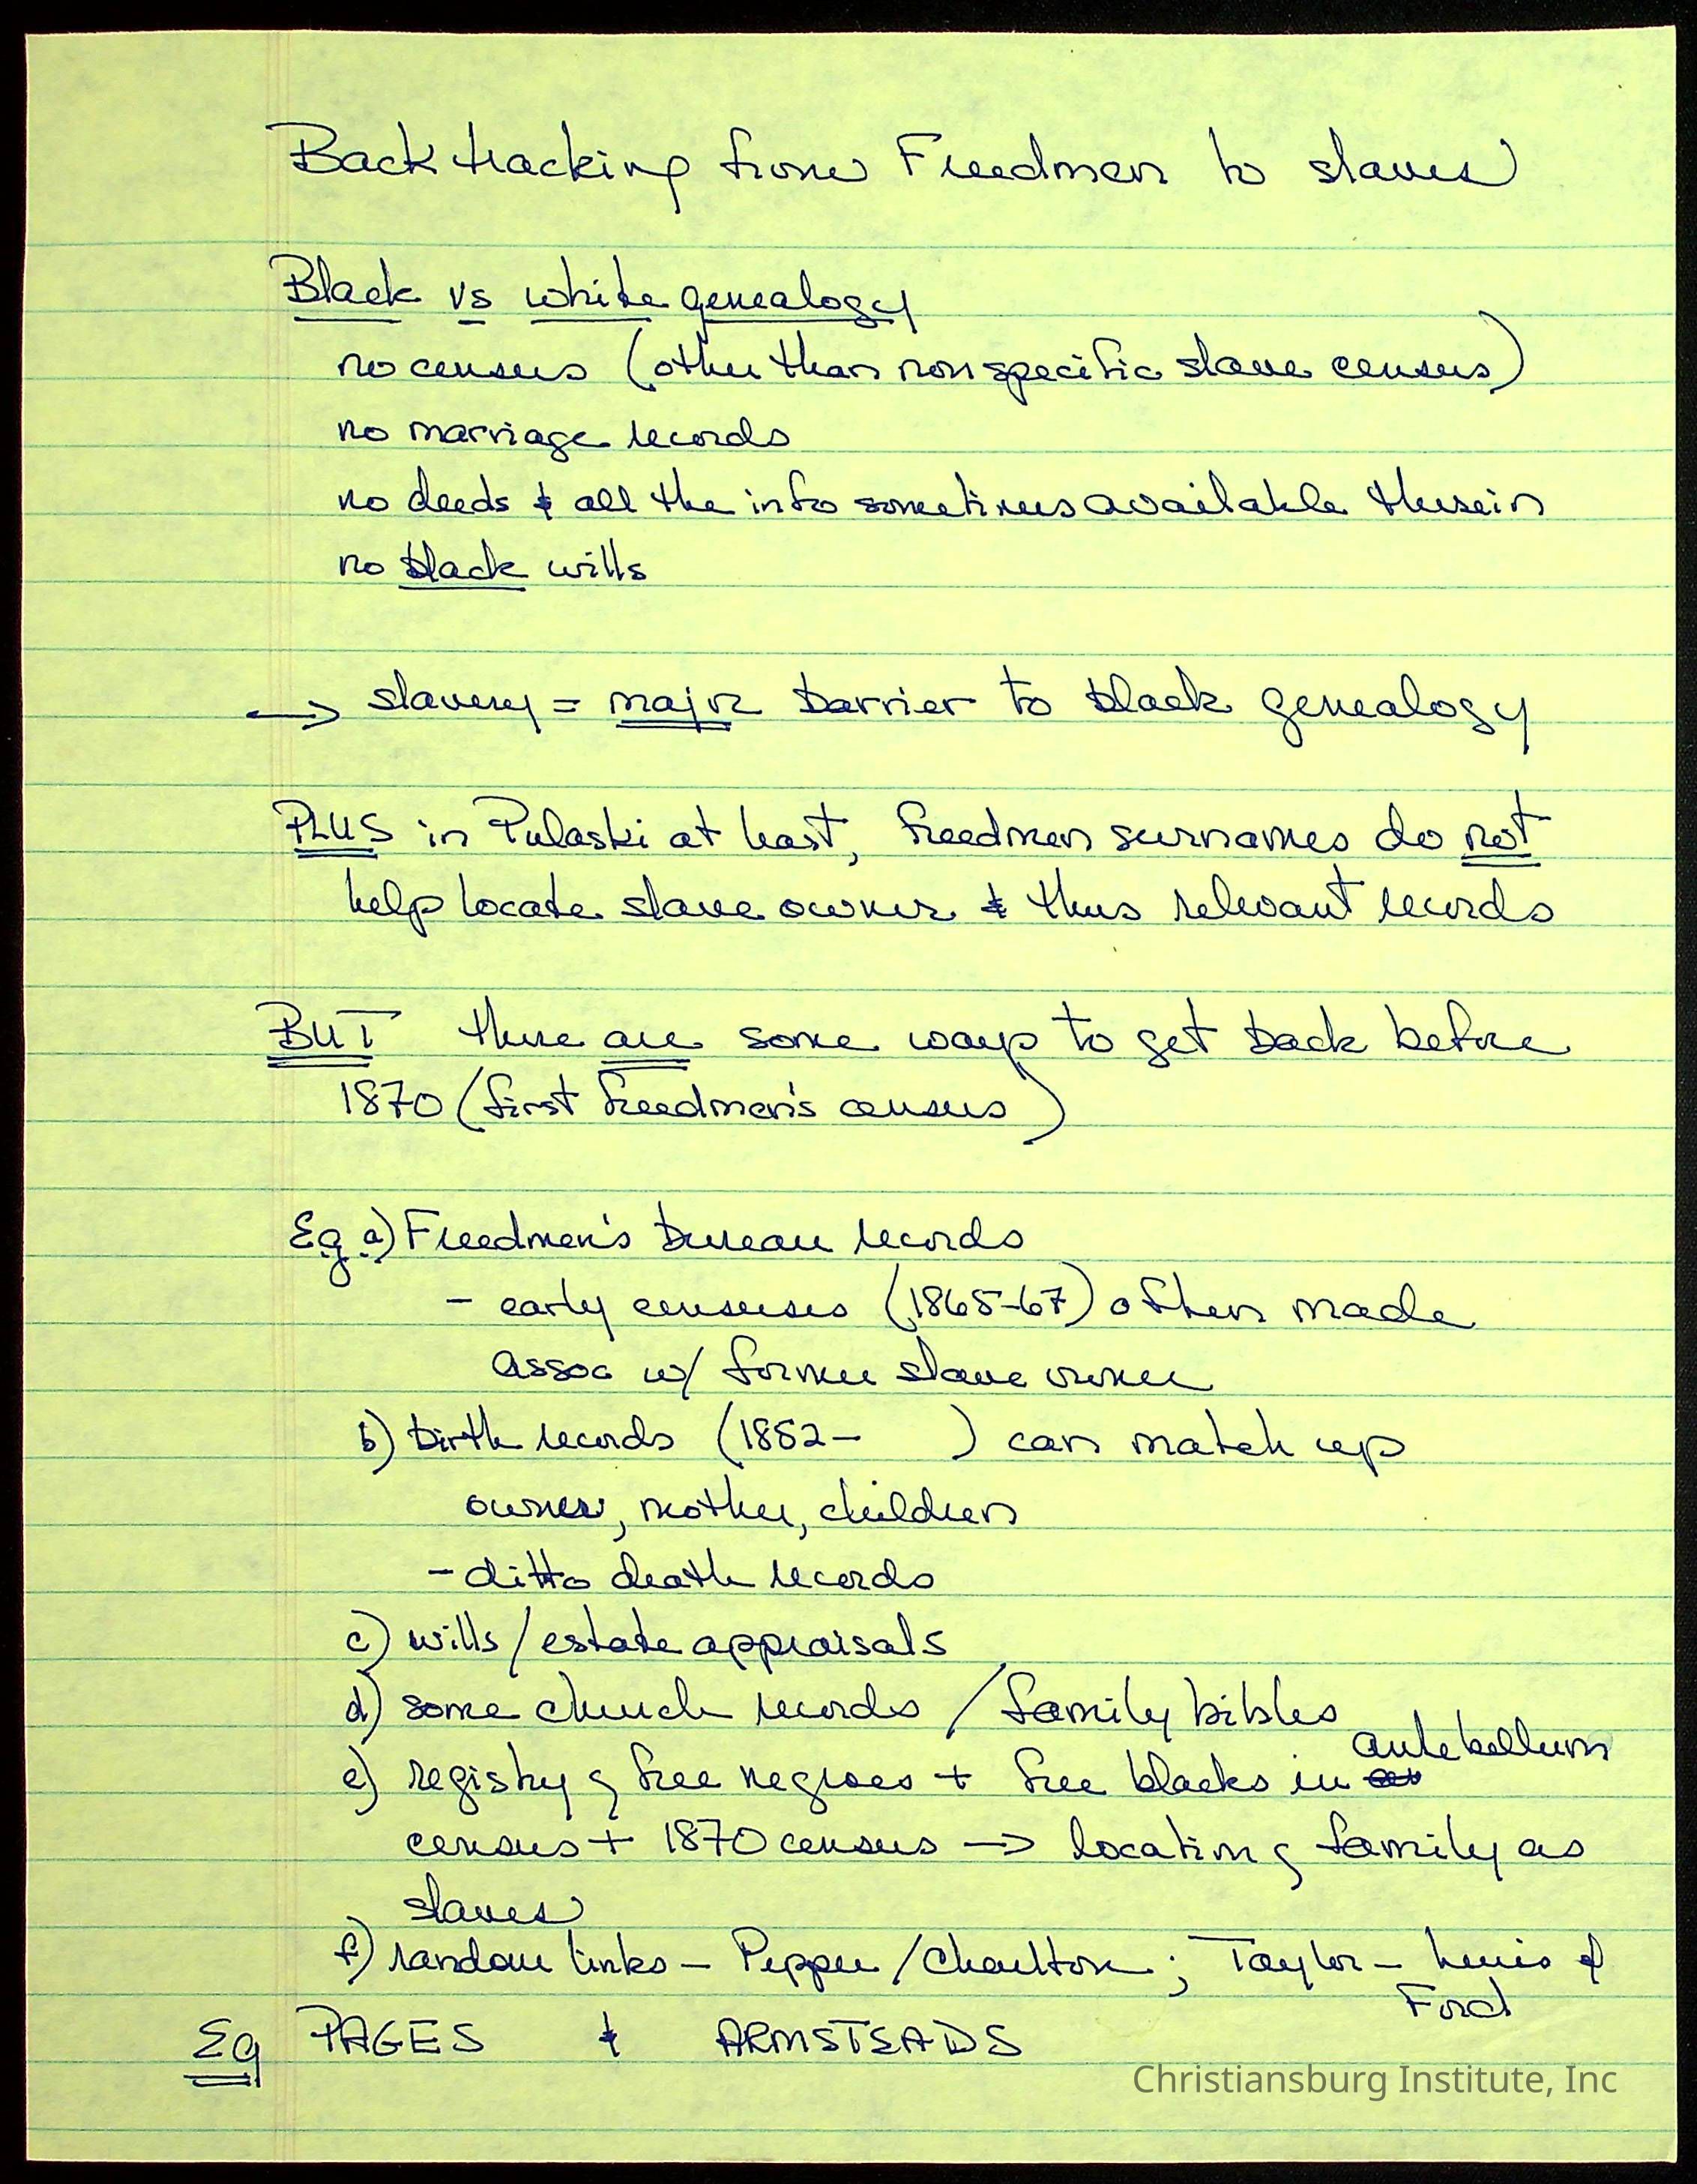 Backtracking from Freedmen to slaves
Black vs white genealogy
no census (other than nonspecific slave census)
no marriage records
no deeds & all the info sometimes available therein
no black wills
→ slavery = major barrier to black genealogy
PLUS in Pulaski at least, freedmen surnames do not
help locate slave owner & thus relevant records
BUT there are some ways to get back before
1870 (first freedmen's census)
Eg a) Freedmen's bureau records
- early censuses (1865-67) often made
assoc w/ former slave owner
b) birth records (1852- ) can match up
owner, mother, children
- ditto death records
c) wills / estate appraisals
d) some church records / family bibles
e) registry of free negroes + free blacks in antebellum
census + 1870 census → location of family as
slaves
f) random links - Pepper / Charlton ; Taylor - Lewis &
Ford
Eg PAGES & ARMSTEADS
Christiansburg Institute, Inc